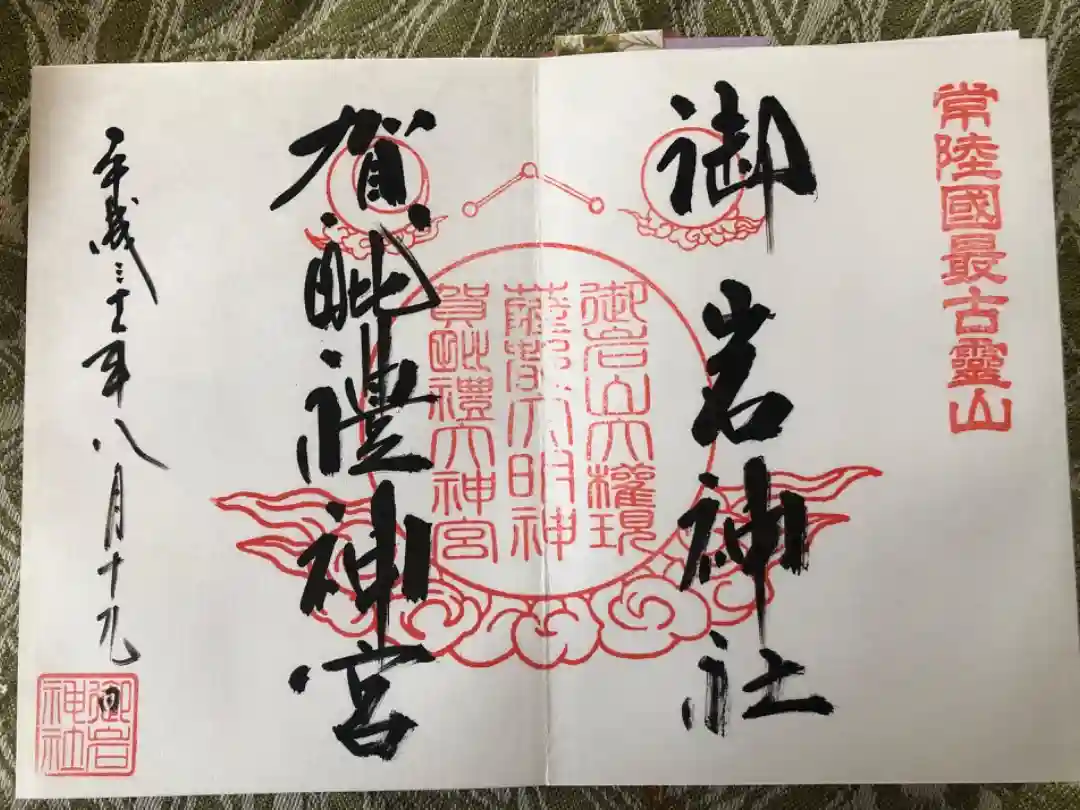 常陸國最古靈山
御岩神社
御岩山大權現
薩都大明神
賀毗禮大神宮
賀毗禮神宮
平成三十年八月十九日
御岩
神社